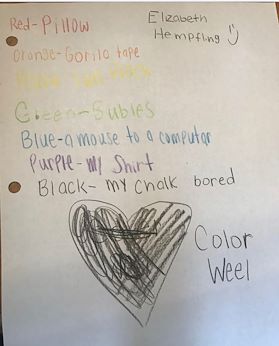 Red-Pillow
Elzabeth
Hempfling
Oronge-Gorilo tape
Green-Bubles
Blue-a mouse to a computar
Purple-my Shirt
Black-my chalk bored
Color
Weel